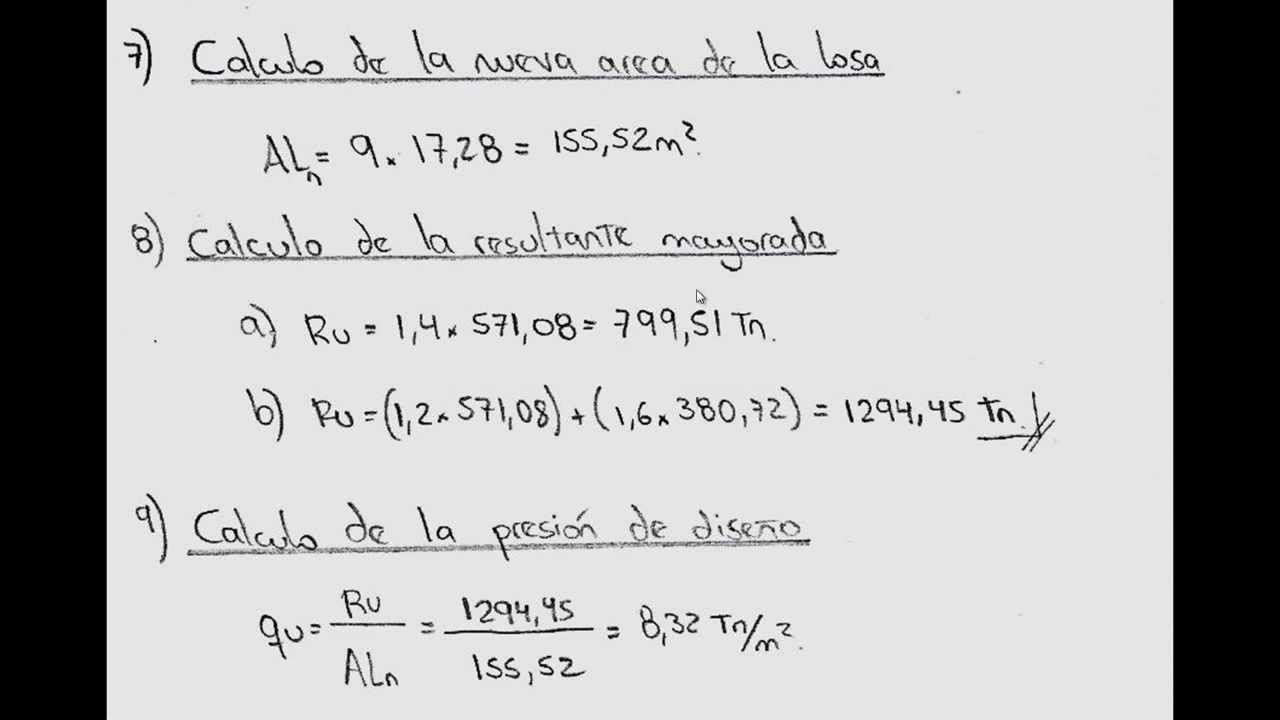 7) Calculo de la nueva area de la losa
ALn = 9 x 17,28 = 155,52 m².
8) Calculo de la resultante mayorada
a) RU = 1,4 x 571,08 = 799,51 Tn.
b) RU = (1,2 x 571,08) + (1,6 x 380,72) = 1294,45 Tn.
9) Calculo de la presión de diseño
qU = RU / ALn = 1294,45 / 155,52 = 8,32 Tn/m².